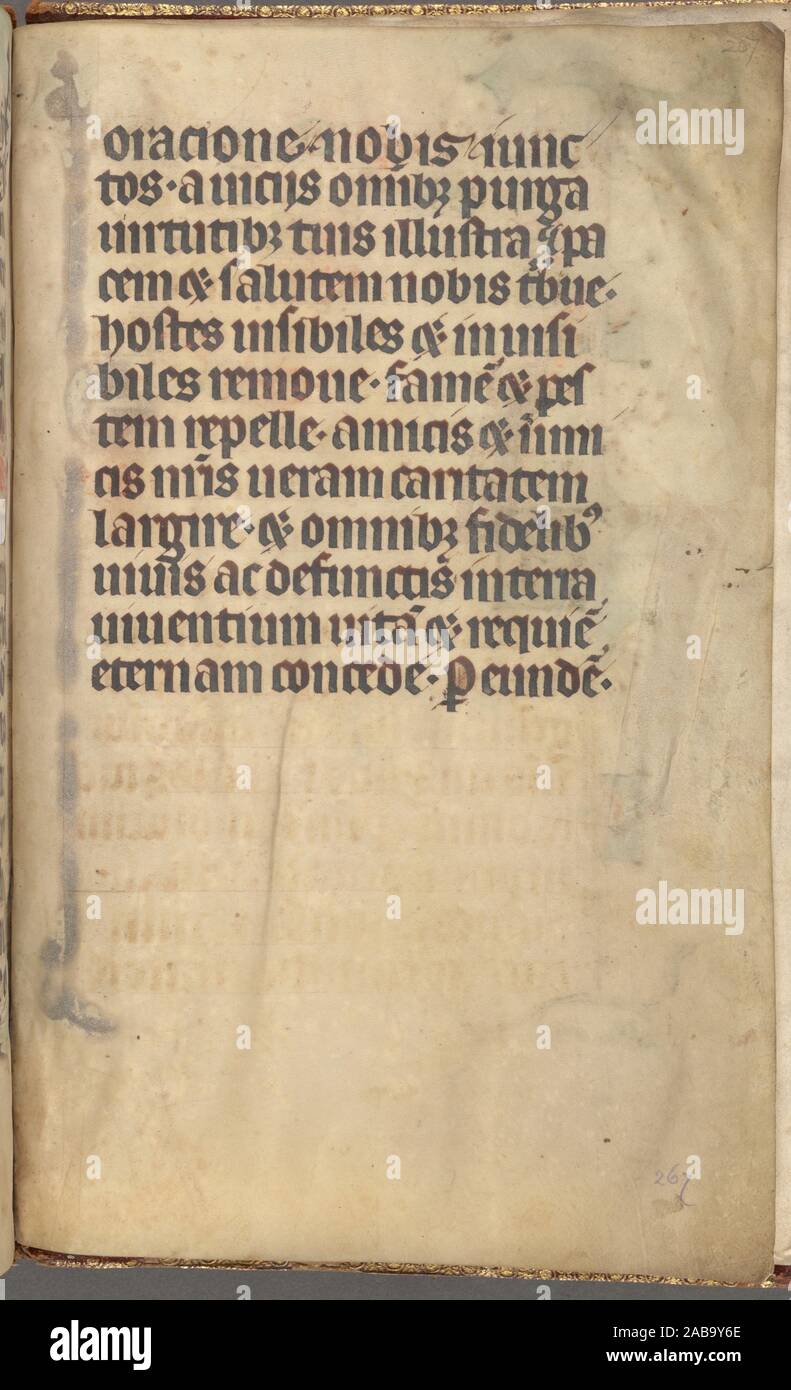 267
oracione nobis iunc
tos · a uicijs omibꝫ purga
uirtutibꝫ tuis illustra ꝗ pa
cem & salutem nobis tbue ·
hostes uisibiles & inuisi
biles remoue · famē & pes
tem repelle · amicis & inimi
cis nr̄is ueram caritatem
largire · & omnibꝫ fidelibꝰ
uiuis ac defunctis in terra
uiuentium uitā & requiē
eternam concede · P eundē ·
267
alamy
alamy
alamy
a
alamy
Image ID: 2AB9Y6E
www.alamy.com